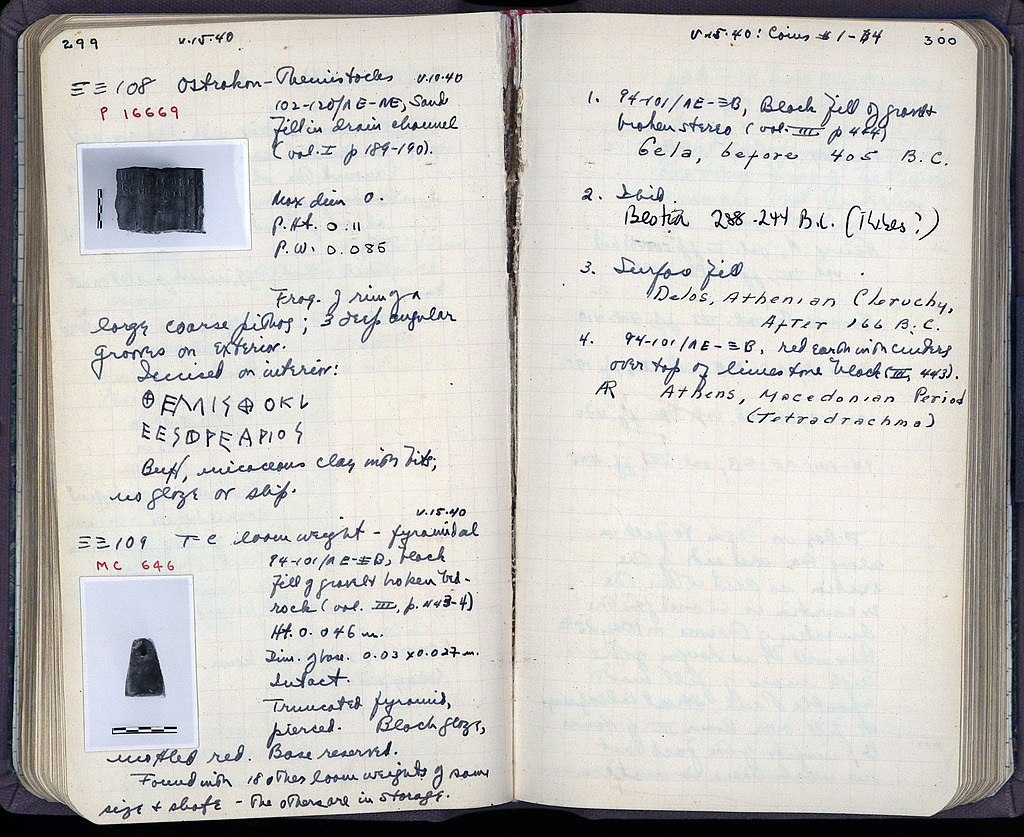 299 v.15.40
ΞΞ 108 Ostrakon - Themistocles v.10.40
P 16669
102-120/ΛE-ΝE, Sand
fill in drain channel
(vol. I p 189-190).
Max dim 0.
P.Ht. 0.11
P.W. 0.085
Frag. of rim of a
large coarse pithos; 3 deep angular
grooves on exterior.
Incised on interior:
ΘEMISΘOKL
EESΦPEAPIOS
Buff, micaceous clay with bits;
no glaze or slip.
v.15.40
ΞΞ 109 TC loomweight - pyramidal
MC 646
94-101/ΛE-ΞB, black
fill of gravel & broken bed-
rock (vol. III, p. 443-4)
Ht. 0.046 m.
Dim. of base. 0.03 x 0.027 m.
Intact.
Truncated pyramid,
pierced. Black glaze,
mottled red. Base reserved.
Found with 18 other loomweights of same
size & shape - the others are in storage.
v.15.40: Coins #1-#4 300
1. 94-101/ΛE-ΞB, Black fill of gravel &
broken stereo (vol. III p 444)
Gela, before 405 B.C.
2. Ibid.
Beotia 288-244 B.C. (Thebes?)
3. Surface fill
Delos, Athenian Cleruchy,
After 166 B.C.
4. 94-101/ΛE-ΞB, red earth with cinders
over top of limestone block (III, 443).
AR Athens, Macedonian Period
(Tetradrachma)